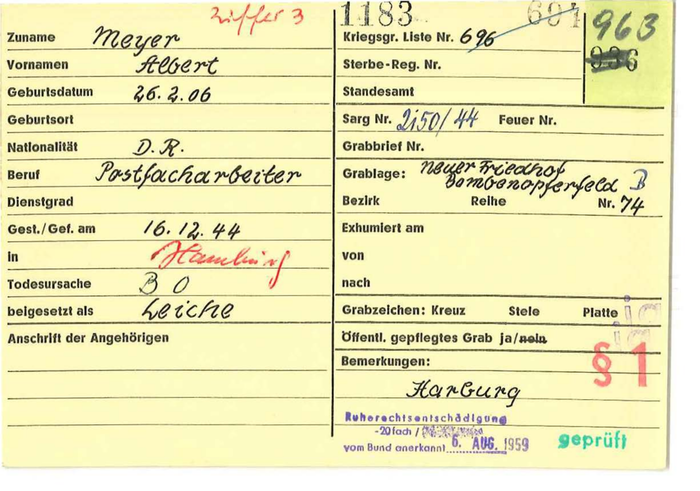 Ziffer 3
1183 604 963
936
Zuname Meyer
Vornamen Albert
Geburtsdatum 26.2.06
Geburtsort
Nationalität D.R.
Beruf Postfacharbeiter
Dienstgrad
Gest./Gef. am 16.12.44
in Hamburg
Todesursache B O
beigesetzt als Leiche
Anschrift der Angehörigen
Kriegsgr. Liste Nr. 696
Sterbe-Reg. Nr.
Standesamt
Sarg Nr. 2150/44 Feuer Nr.
Grabbrief Nr.
Grablage: Neuer Friedhof
Bombenopferfeld B
Bezirk Reihe Nr. 74
Exhumiert am
von
nach
Grabzeichen: Kreuz Stele Platte ja
Öffentl. gepflegtes Grab ja/nein ja
§ 1
Bemerkungen:
Harburg
Ruherechtsentschädigung
-20fach /
vom Bund anerkannt 6. AUG. 1959
geprüft